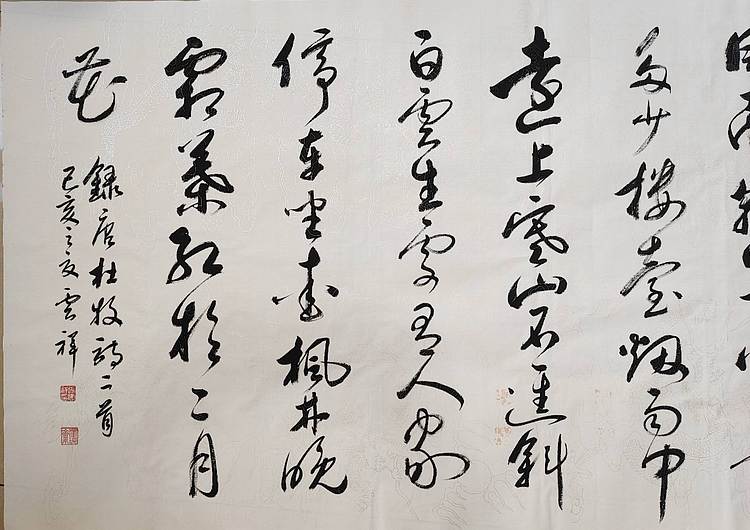 多少樓臺煙雨中
遠上寒山石徑斜
白雲生處有人家
停車坐愛楓林晚
霜葉紅於二月
花
錄唐杜牧詩二首
己亥之夏雲祥